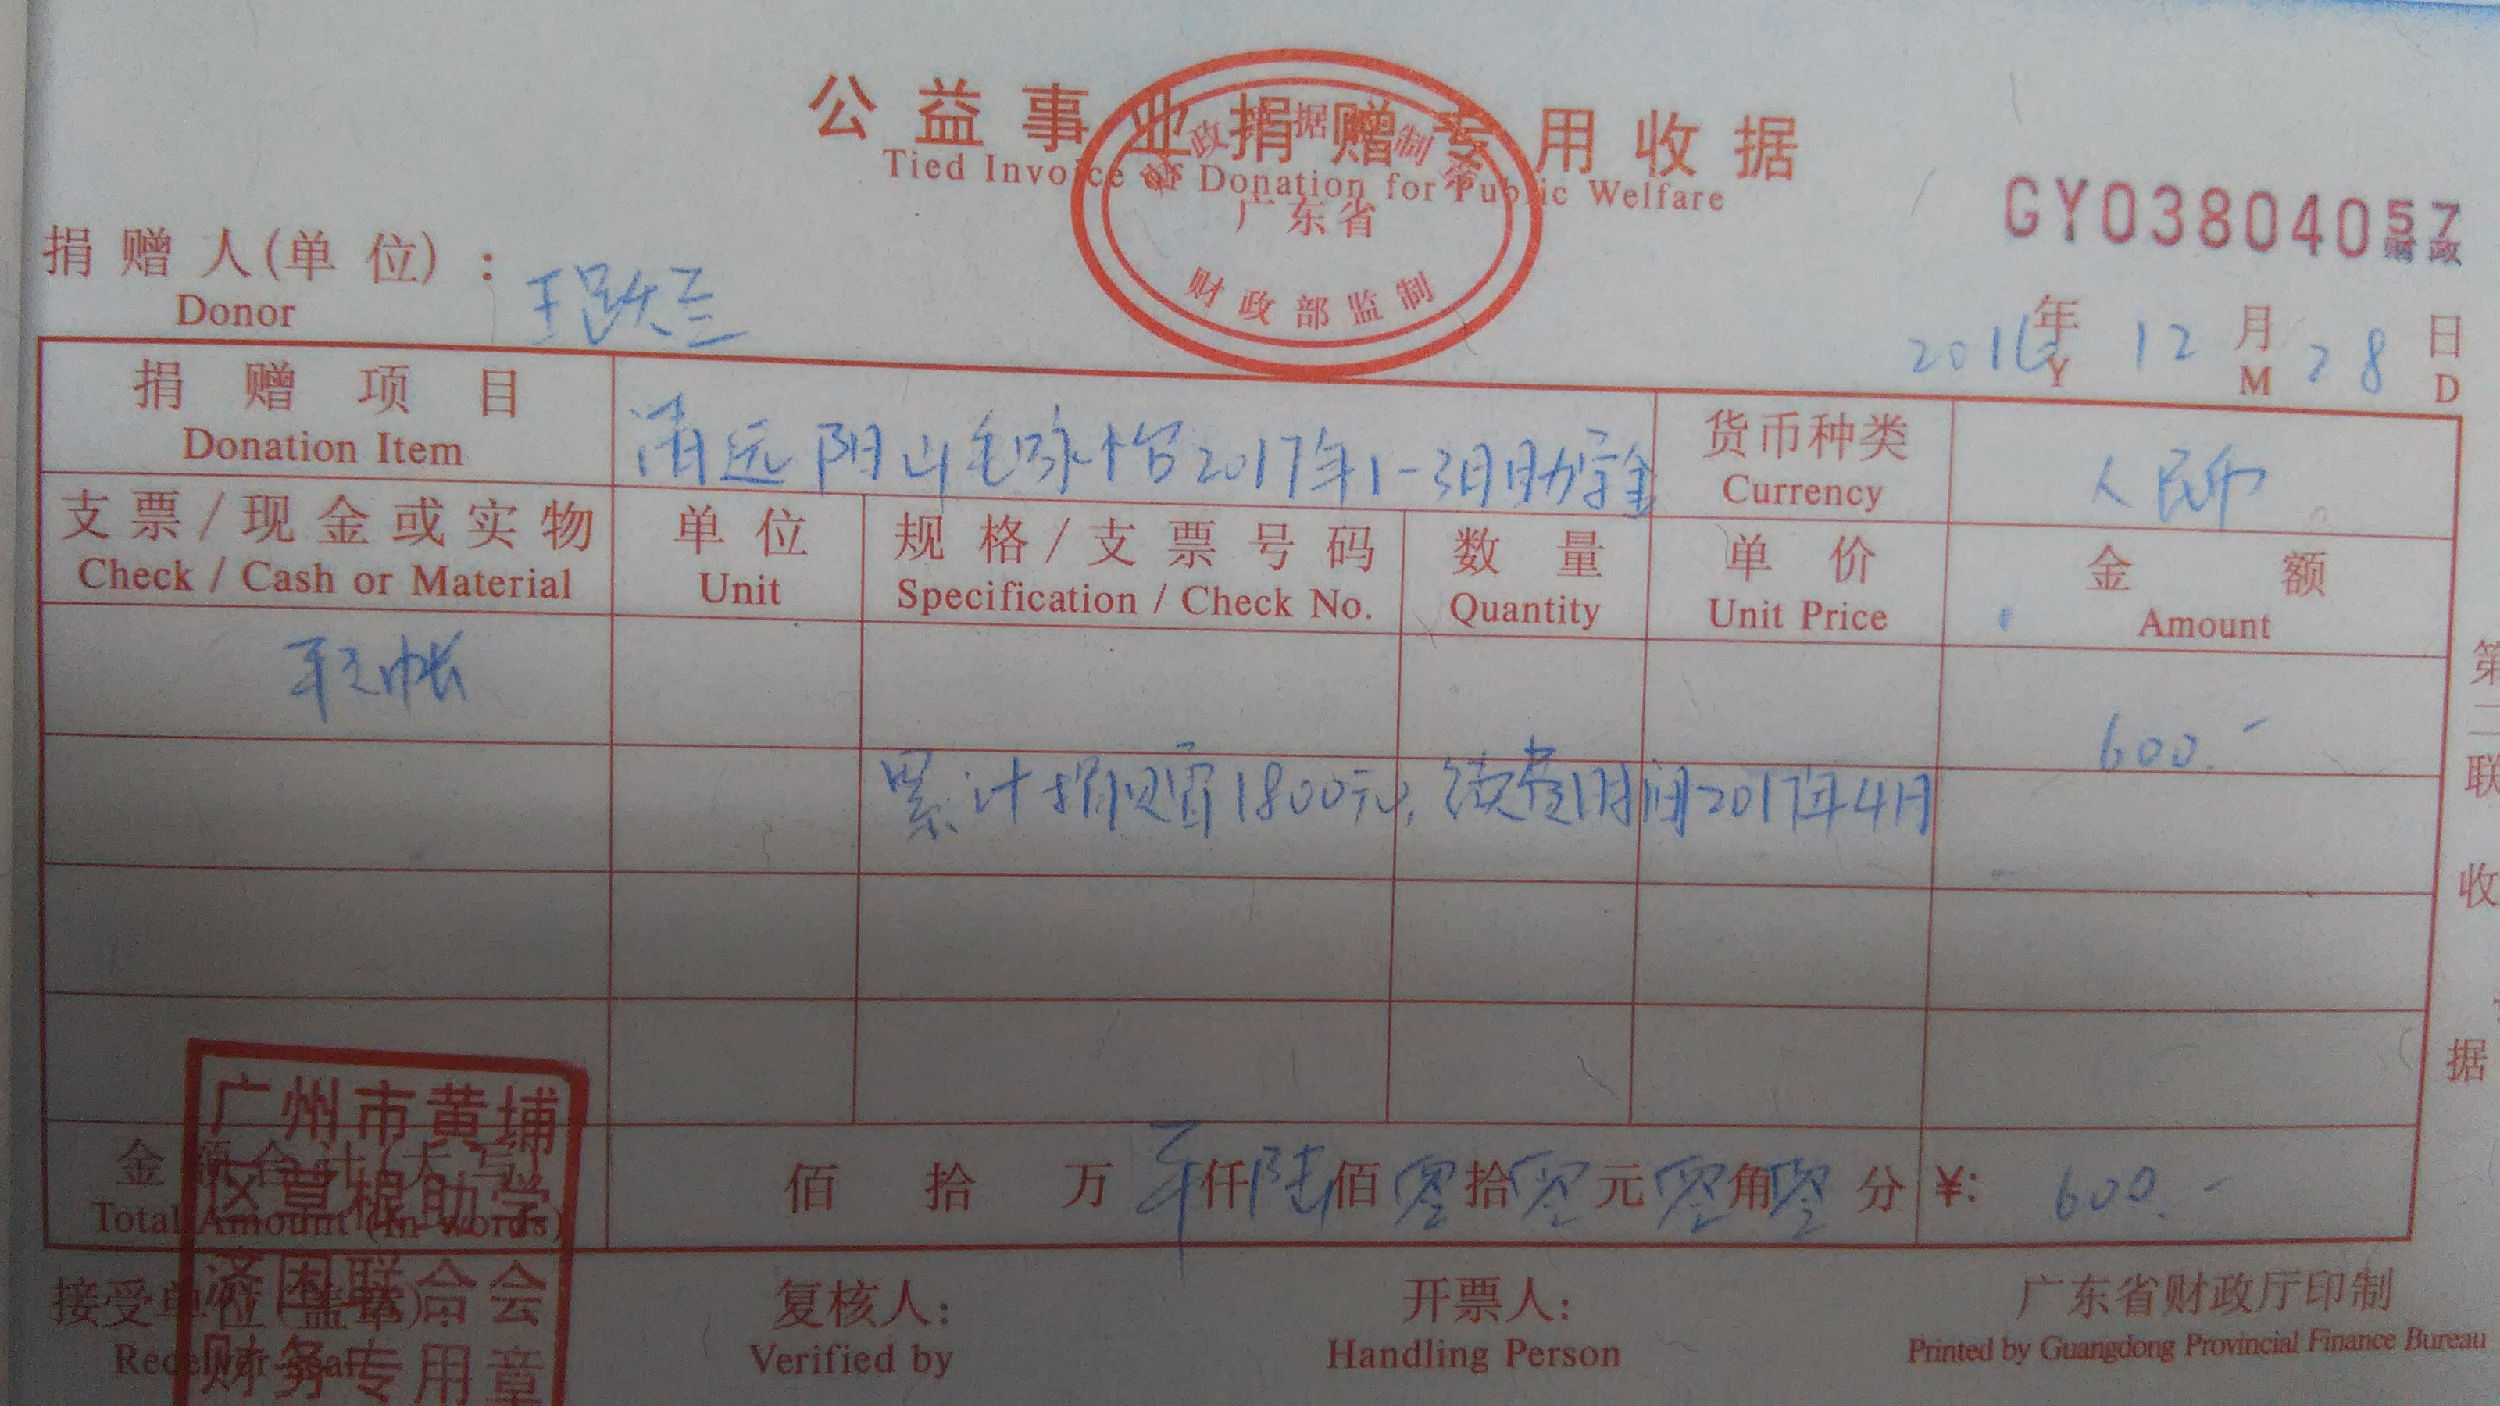 公益事业捐赠专用收据
Tied Invoice of Donation for Public Welfare
广东省
财政部监制
GY03804057
捐赠人(单位):
Donor
2016年 12月 28日
Y M D
捐赠项目 清远阳山毛咏怡2017年1-3月助学金 货币种类 人民币
Donation Item Currency
支票/现金或实物 单位 规格/支票号码 数量 单价 金额
Check / Cash or Material Unit Specification / Check No. Quantity Unit Price Amount
600.-
累计捐资1800元, 续费时间2017年4月
第二联
收
据
金额合计(大写) 佰 拾 万 仟陆佰零拾零元零角零分 ¥: 600.-
Total Amount (in words)
接受单位(盖章): 复核人: 开票人: 广东省财政厅印制
Receiver Seal Verified by Handling Person Printed by Guangdong Provincial Finance Bureau
广州市黄埔
区草根助学
济困联合会
财务专用章